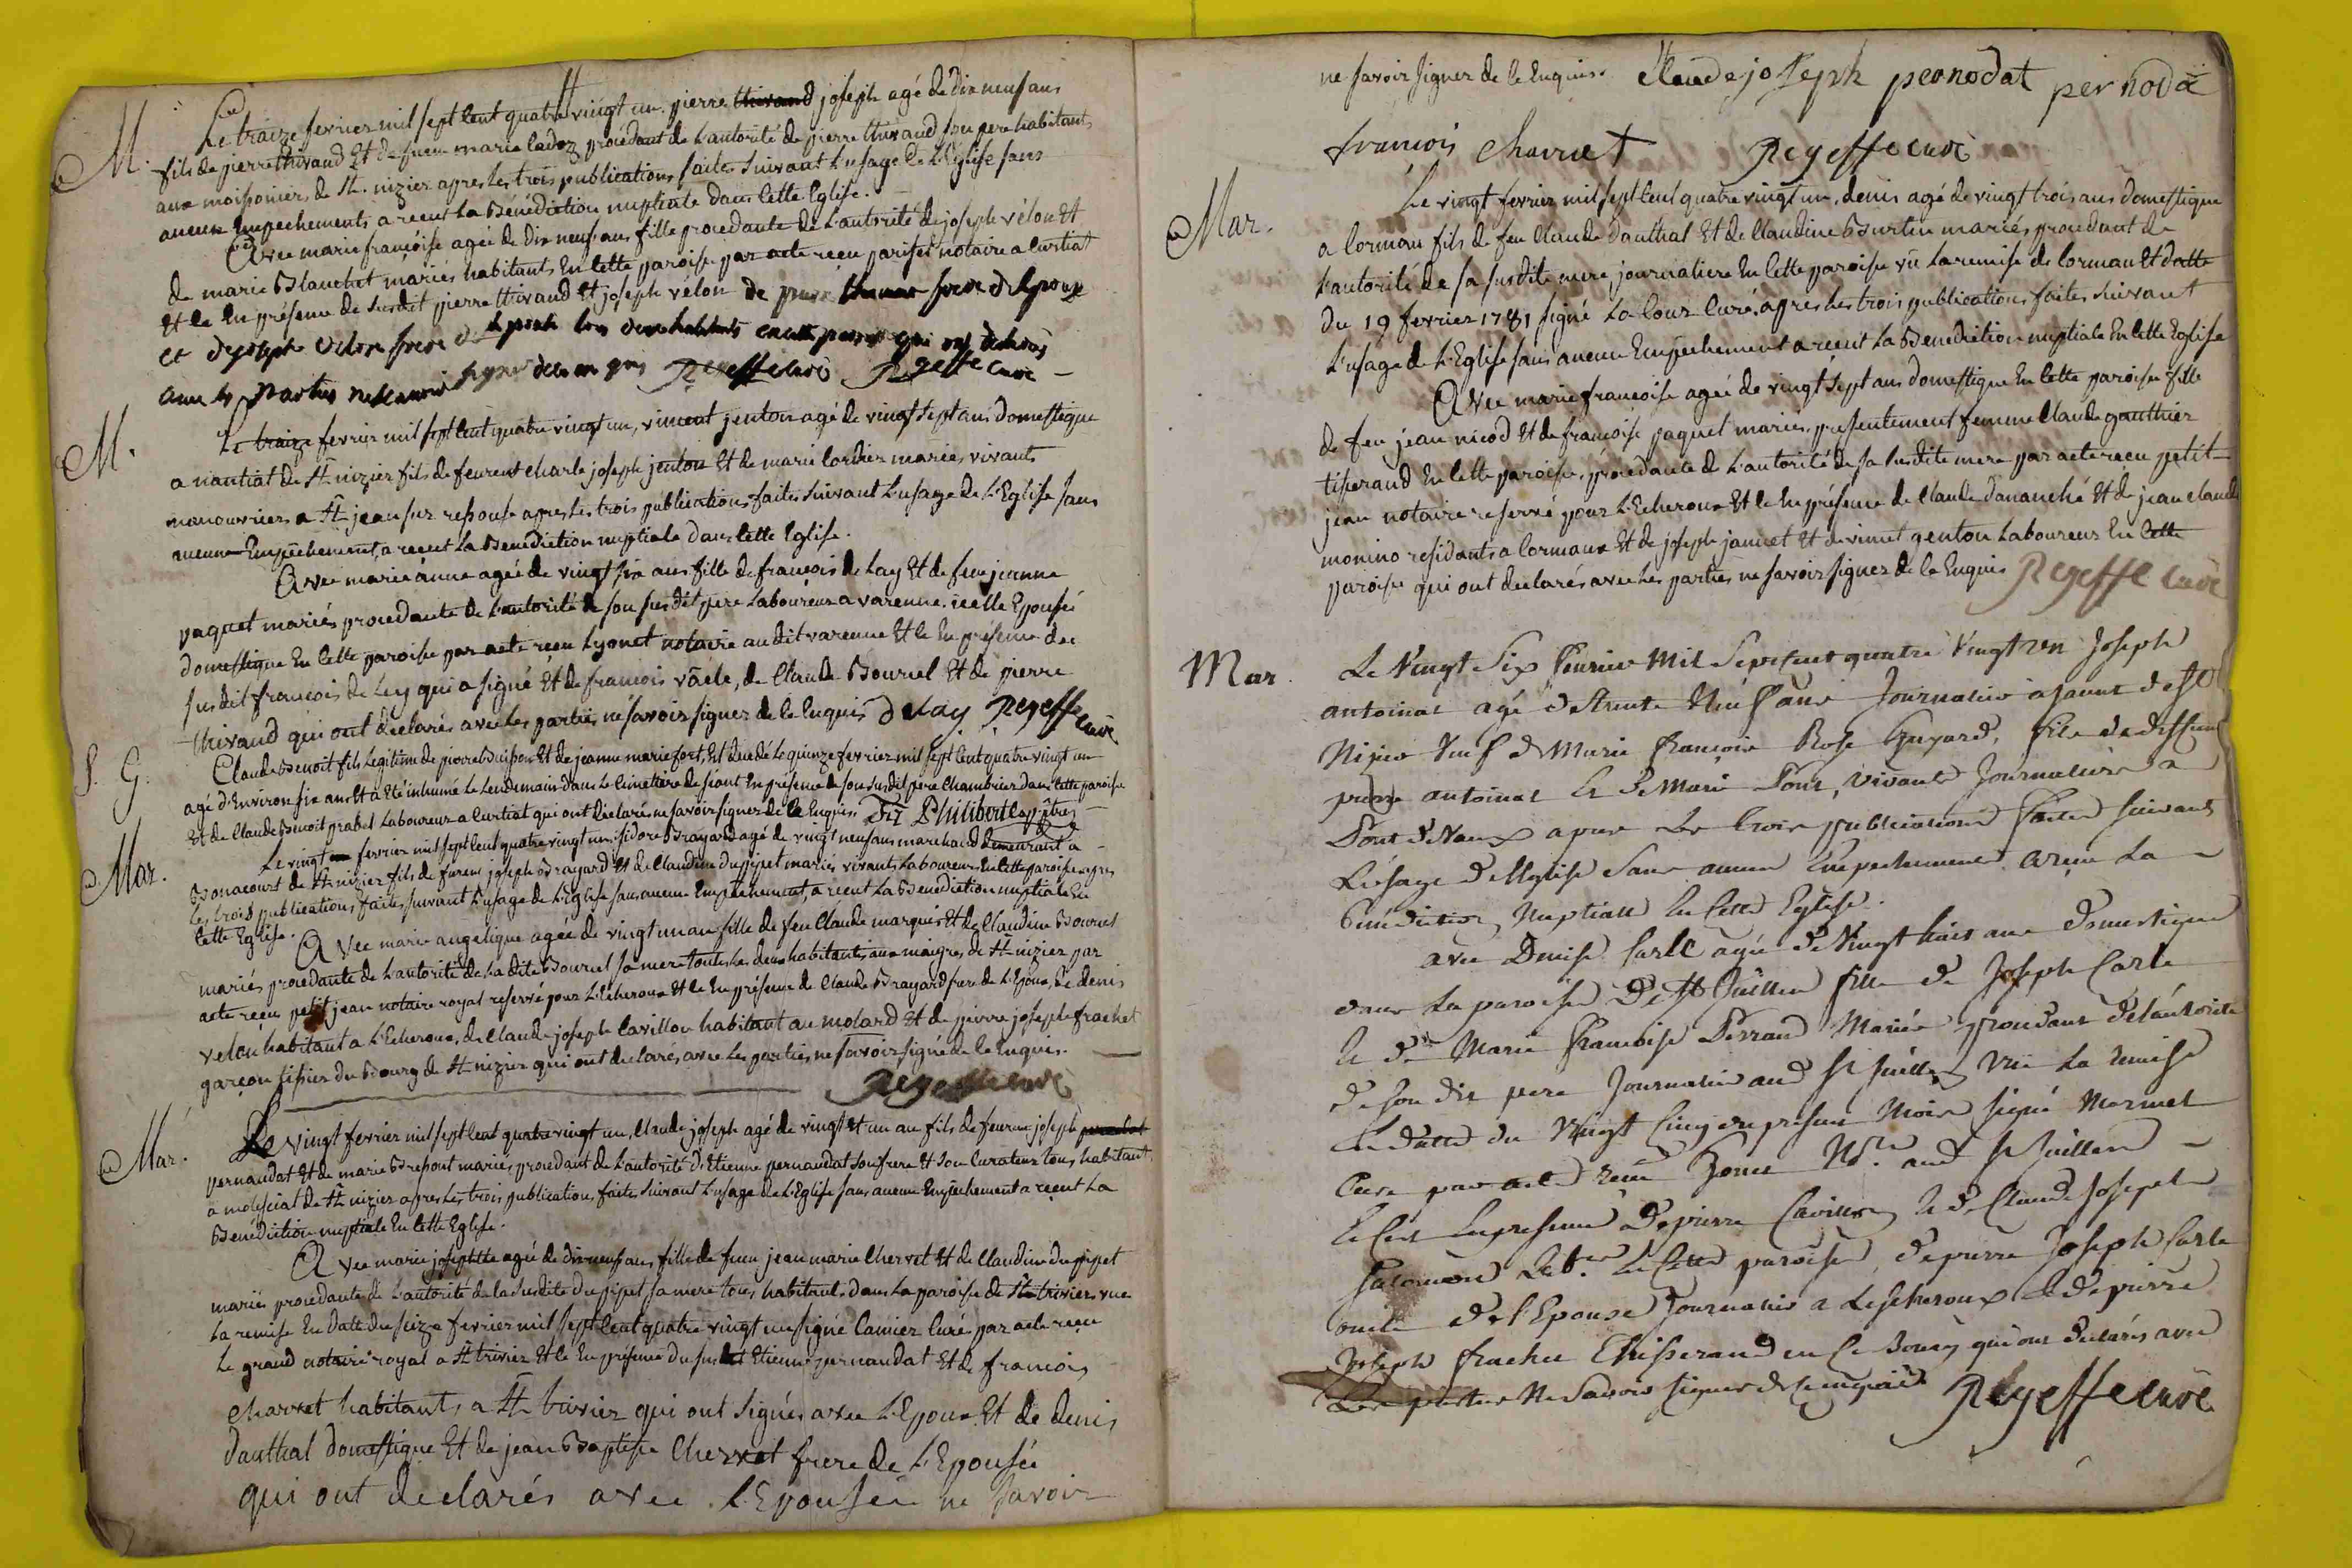 M. Le traize fevrier mil sept cent quatre vingt un. pierre thivand joseph agé de dix neuf ans
fils de pierre thivand Et de feue marie ladoz procédant de L'autorité de pierre thivand son pere habitants
aux moissonier de St. nizier apres Les trois publications faites suivant L'usage de L'Eglise sans
aucun Empechements a receut La Bénédiction nuptiale dans Cette Eglise.
Avec marie françoise agée de dix neuf ans fille procedante de L'autorité de joseph vélon Et
de marie Blanchet mariés habitants En Cette paroisse par acte recu notaire a Curtiat
Et Ce En présence de susdit pierre thivand Et joseph velon de pierre frere de Epoux
et de joseph velon frere de tous deux habitants en cette paroisse qui ont déclarés
avec les Parties ne scavoir signer de ce enquis Regeffe curé Regeffe curé
M. Le traize fevrier mil sept cent quatre vingt un, vincent jenton agé de vingt sept ans domestique
a nantiat de St nizier fils de feurent charle joseph jenton Et de marie cordier mariés, vivants
manouvriers a St jean sur resouse apres Les trois publications faites suivant L'usage de L'Eglise sans
aucune Empêchement, a receut La Benediction nuptiale dans Cette Eglise.
Avec marie anne agée de vingt six ans fille de françois de Lay Et de feue jeanne
paquet mariés procedante de L'autorité de son susdit pere Laboureur a varenne. icelle Epousée
domestique En Cette paroisse par acte recu Lyonet notaire audit varenne Et Ce En présence de
susdit francois de Ley qui a signé Et de francois vaéle, de Claude Bourcel Et de pierre
thivand qui ont declarés avec Les parties ne savoir signer de Ce Enquis delay Regeffe Curé
S. G. Claude Benoit fils Legitime de pierre Buisson Et de jeanne marie fort, Est decedé Le quinze fevrier mil sept Cent quatre vingt un
agé d'Environ six ans Et a Eté inhumé Le Lendemain dans Le Cimetiere de seant En présence de son susdit pere Chambrier dans Cette paroisse
Et de Claude Benoit grabet Laboureur a Curtiat qui ont declarés ne savoir signer de Ce Enquis. Philibert
Mar. Le vingt fevrier mil sept cent quatre vingt un. isidore Brayard agé de vingt neuf ans marechand demeurant a
Bonacourt de St. nizier fils de furent joseph Brayard Et de Claudine Dupupet mariés vivants Laboureurs En Cette paroisse apres
Les trois publications faites suivant L'usage de L'Eglise sans aucun Empechement, a receut La Benediction nuptiale En
Cette Eglise.
Avec marie angelique agée de vingt un an fille de feu Claude marquis Et de Claudine Bourcet
mariés procedante de L'autorité de La dite Bourcel sa mere toutes Les deux habitantes aux maigres de St nizier par
acte recu petit jean notaire royal reservé pour L'Echeroux Et Ce En présence de Claude Brayard frere de L'Epoux, de denis
velon habitant a L'Echeroux, de Claude joseph Cavillon habitant au molard Et de pierre joseph frachet
garçon tissier du Bourg de St nizier qui ont declarés avec Les parties ne savoir signé de Ce Enquis.
Regeffe curé
Mar. Le vingt fevrier mil sept cent quatre vingt un, Claude joseph agé de vingt Et un an fils de feu joseph
pernaudat Et de marie Brepont mariés, procedant de L'autorité d'Etienne pernaudat son frere Et son Curateur tous habitant
a molissiat de St nizier apres Les trois publications faites suivant L'usage de L'Eglise sans aucune Empechement a receut La
Bénédiction nuptiale En Cette Eglise.
Avec marie josephte agée de dix neuf ans, fille de feu jean marie Chervet Et de Claudine dupupet
mariés procedante de L'autorité de La susdite dupupet sa mere tous habitants dans La paroisse de St trivier vue
La remise En Date du seize fevrier mil sept cent quatre vingt un signé Camier Curé par acte recu
Le grand notaire royal a St trivier Et Ce En présence du susdit Etienne pernaudat Et de francois
Charvet habitants a St trivier qui ont signés avec L'Epoux. Et de denis
dauthal domestique Et de jean Baptiste Chervet frere de L'Epousée
qui ont declarés avec L'Epousée ne savoir
ne savoir signer de Ce Enquis. Claude joseph pernodat pernoda
francois charvet Regeffe curé
Mar. Le vingt fevrier mil sept cent quatre vingt un, denis agé de vingt trois ans domestique
a Cormau fils de feu Claude dauthal Et de Claudine Burtin mariés, procedant de
L'autorité de sa susdite mere journaliere En Cette paroisse vü La remise de Cormau Et datte
du 19 fevrier 1781 signé La Cour Curé. apres Les trois publications faites suivant
L'usage de L'Eglise sans aucun Empechement a receut La Benediction nuptiale En Cette Eglise
Avec marie francoise agée de vingt sept ans domestique En Cette paroisse fille
de feu jean nicod Et de francoise paquet mariés, presentement femme Claude gauthier
tisserand En Cette paroisse, procedante de L'autorité de sa susdite mere par acte recu petit
jean notaire reservé pour L'Echeroux Et Ce En présence de Claude dananché Et de jean Claude
monino residants a Cormaux Et de joseph januet Et de vincent genton Laboureur En Cette
paroisse qui ont declarés avec Les parties ne savoir signer de Ce Enquis Regeffe curé
Mar. Le Vingt Six fevrier Mil Sept cent quatre Vingt un Joseph
antoinat agé de trente Neuf ans Journalier a jannet de St
Nizier Veuf de Marie françoise Rose Guyard, fils de deffunt
pierre antoinat Et de Marie Pont, vivants Journaliers a
Pont de Vaux apres Les trois publications faites suivant
L'usage de L'Eglise Sans aucun Empechement a reçu La
Bénédiction Nuptialle En Cette Eglise.
avec Denise Carle agée de Vingt huit ans domestique
dans La paroisse De St Jüllien fille de Joseph Carle
Et de Marie Francoise Perrand Mariés procedant de L'autorite
de son dit pere Journalier aud St Jüillen Vue La Remise
En datte du Vingt Cinq du présent Mois signé Mermet
Cure par acte recu Nore. aud St Juillen
Et Cest En presence De pierre Cavillon Et de Claude Joseph
Salomon Labr. En Cette paroisse, de pierre Joseph Carle
oncle de L'Epouse Journalier a Lescheroux Et de pierre
Joseph frachet Thisserand en Ce Bourg qui ont declarés avec
Les parties Ne Savoir signer de Ce enquis Regeffe curé